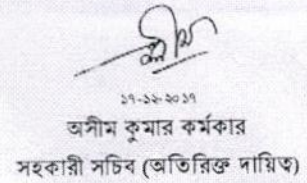 ১৭-১২-২০১৭
অসীম কুমার কর্মকার
সহকারী সচিব (অতিরিক্ত দায়িত্ব)